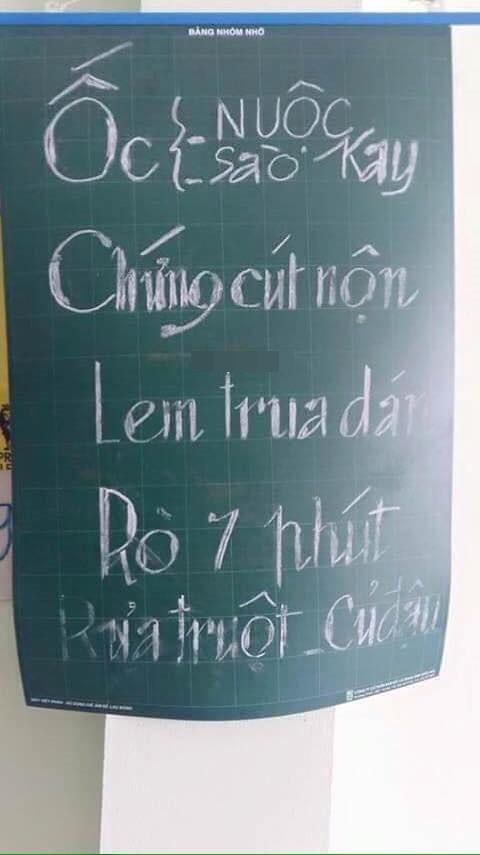 BẢNG NHÓM NHỎ
Ốc { - NUỘC
- Sào Kay
Chứng cút nộn
Lem trua dán
Rò 7 phút
Rủa truột _ Củ đậu